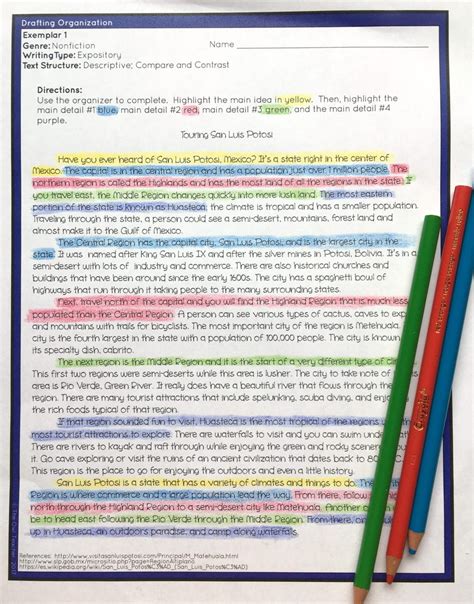 Drafting Organization
Exemplar 1
Genre: Nonfiction
Name
WritingType: Expository
Text Structure: Descriptive; Compare and Contrast
Directions:
Use the organizer to complete. Highlight the main idea in yellow. Then, highlight the
main detail #1 blue, main detail #2 red, main detail #3 green, and the main detail #4
purple.
Touring San Luis Potosi
Have you ever heard of San Luis Potosi, Mexico? It's a state right in the center of
Mexico. The capital is in the central region and has a population just over 1 million people. The
northern region is called the Highlands and has the most land of all the regions in the state. If
you travel east, the Middle Region changes quickly into more lush land. The most eastern
portion of the state is known as Huasteca; the climate is tropical and has a smaller population.
Traveling through the state, a person could see a semi-desert, mountains, forest land and
almost make it to the Gulf of Mexico.
The Central Region has the capital city, San Luis Potosi, and is the largest city in the
state. It was named after King San Luis IX and after the silver mines in Potosi, Bolivia. It's in a
semi-desert with lots of industry and commerce. There are also historical churches and
buildings that have been around since the early 1600s. The city has a spaghetti bowl of
highways that run through it taking people to the many surrounding states.
Next, travel north of the capital and you will find the Highland Region that is much less
populated than the Central Region. A person can see various types of cactus, caves to exp
and mountains with trails for bicyclists. The most important city of the region is Matehuala,
city is the fourth largest in the state with a population of 100,000 people. The city is known
its specialty dish, cabrito.
The next region is the Middle Region and it is the start of a very different type of cli
This first two regions were semi-deserts while this area is lusher. The city to take note of
area is Rio Verde, Green River. It really does have a beautiful river that flows through the
region. There are many tourist attractions that include spelunking, scuba diving, and enjo
the rich foods typical of that region.
If that region sounded fun to visit, Huasteca is the most tropical of the regions
most tourist attractions to explore. There are waterfalls to visit and you can swim under
There are rivers to kayak and raft through while enjoying the green and rocky scenery
it. Go cave exploring or visit the ruins of an ancient civilization that dates back to 80
This region is the place to go for enjoying the outdoors and even a little history.
San Luis Potosi is a state that has a variety of climates and things to do. The
Region is where commerce and a large population lead the way. From there, follow
north through the Highland Region to a semi-desert city like Matehuala. Another
be to head east following the Rio Verde through the Middle Region. From there, on
up in Huasteca and paddle, swim, and camp along waterfalls.
References: